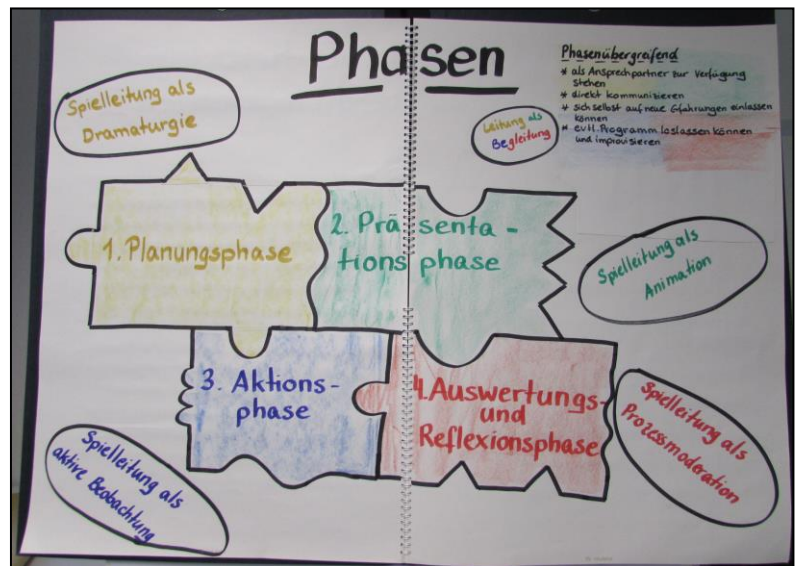 Phasen
Phasenübergreifend
* als Ansprechpartner zur Verfügung
stehen
* direkt kommunizieren
* sich selbst auf neue Erfahrungen einlassen
können
* evtl. Programm loslassen können
und improvisieren
Spielleitung als
Dramaturgie
Leitung als
Begleitung
1. Planungsphase
2. Präsenta-
tionsphase
Spielleitung als
Animation
3. Aktions-
phase
4. Auswertungs-
und
Reflexionsphase
Spielleitung als
aktive Beobachtung
Spielleitung als
Prozessmoderation